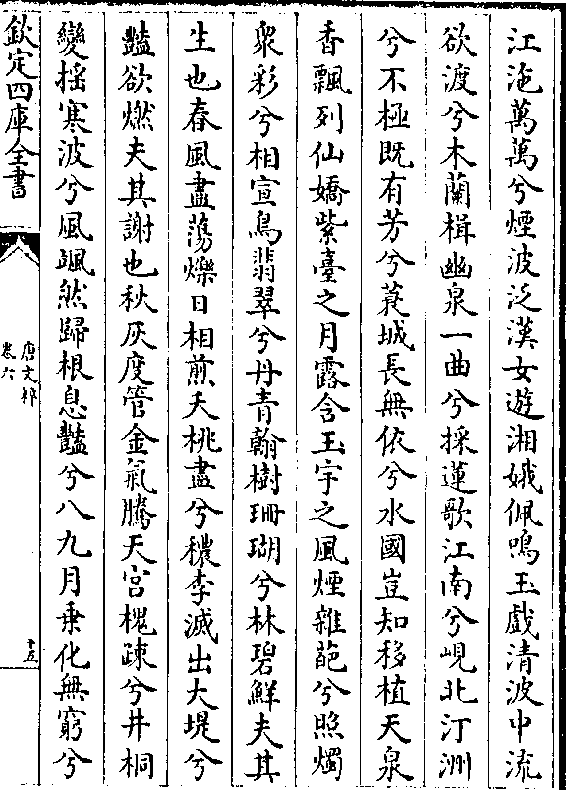 江沲萬萬兮煙波泛漢女遊湘娥佩鳴玉戲清波中流
欲渡兮木蘭楫幽泉一曲兮採蓮歌江南兮峴北汀洲
兮不極既有芳兮莪城長無依兮水國豈知移植天泉
香飄列仙嬌紫臺之月露含玉宇之風煙雜葩兮照燭
衆彩兮相宣鳥翡翠兮丹青翰樹珊瑚兮林碧鮮夫其
生也春風盡蕩爍日相煎夭桃盡兮穠李滅出大堤兮
豔欲燃夫其謝也秋灰度管金氣騰天宮槐疎兮井桐
變揺寒波兮風颯然歸根息豔兮八九月乗化無窮兮
欽定四庫全書
唐文粹
卷六
十五